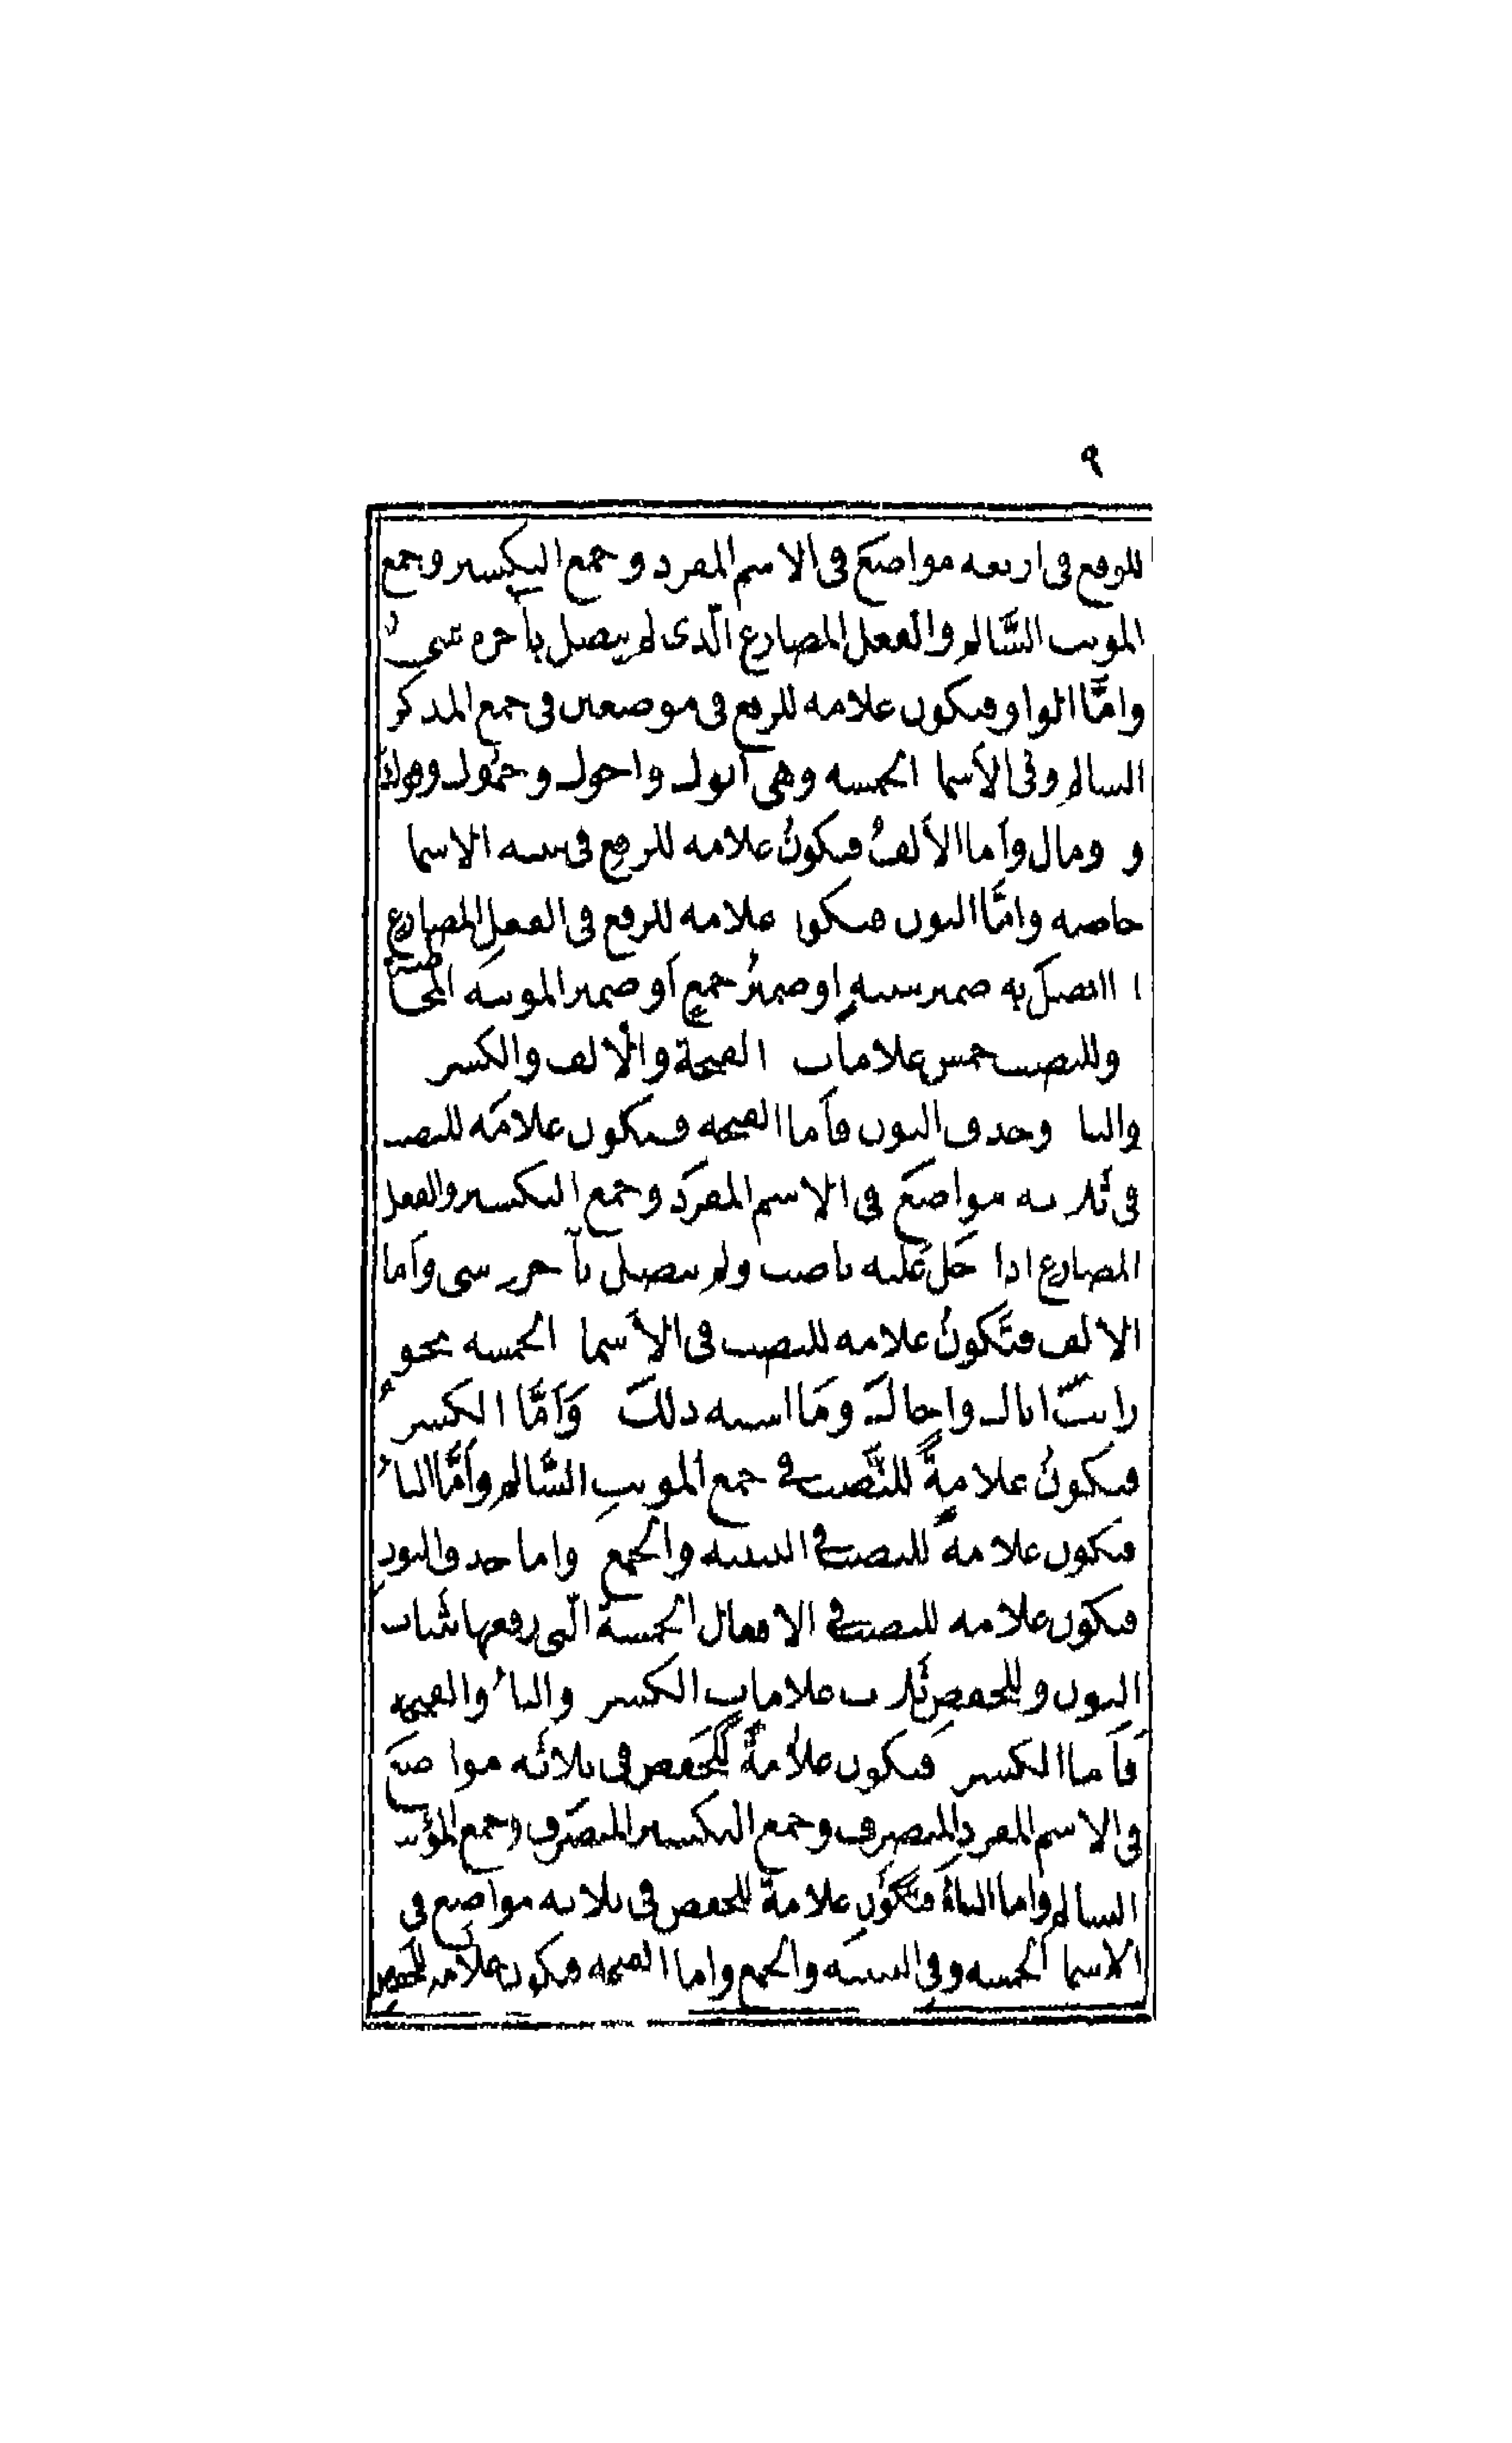 ٩
للرفع فى اربعه مواضع فى الاسم المفرد وجمع التكسير وجمع
المونث السَّالم والفعل المضارع الّذى لم يتصل بآخره شى
وامَّا الواو فتكون علامه للرفع فى موضعين فى جمع المذكر
السالم وفى الأسما الخمسه وهى ابوك واخوك وحموك وفوك
و ومال وأما الألفُ فتكونُ علامه للرفع فى تثنيه الاسما
خاصه وامَّا النون فتكون علامه للرفع فى الفعل المضارع
ا اتصل به ضمير تثنيه او ضميرُ جمعٍ أو ضمير المونثه المخاطبة
وللنصب خمس علامات الفتحة والألف والكسر
واليا وحذف النون فأما الفتحه فتكون علامَه للنصب
فى ثلاثه مواضع فى الاسم المفرَد وجمع التكسير والفعل
المضارع اذا دخل عليه ناصب ولم يتصل بآخره شى وأما
الالف فتَكونُ علامه للنصب فى الأسما الخمسه نحو
رايتَ اباك واخاكَ ومَا اشبه ذلكَ وَأمَّا الكسر
فتكونُ علامةً للنَّصب فى جمع المونثِ السَّالم وأمَّا الياُ
فتكون علامةً للنصب فى التثنيه والجمع واما حذف النون
فتكون علامه للنصب فى الافعال الخمسة الّتى رفعها بثبات
النون وللخفض ثلاث علاماتٍ الكسر والياُ والفتحه
فَأما الكسر فَتكون علاَمةً للخَفض فى ثلاثه مواضع
فى الاسم المفرد المنصرف وجمع التكسير المنصَرف وجمع المؤنث
السالم واما الياءُ فتَكوَن علامةً للخفض فى ثلاثه مواضع فى
الاسما الخمسه وفى التثنيَه والجمع واما الفتحه فتكون علامه للخفض